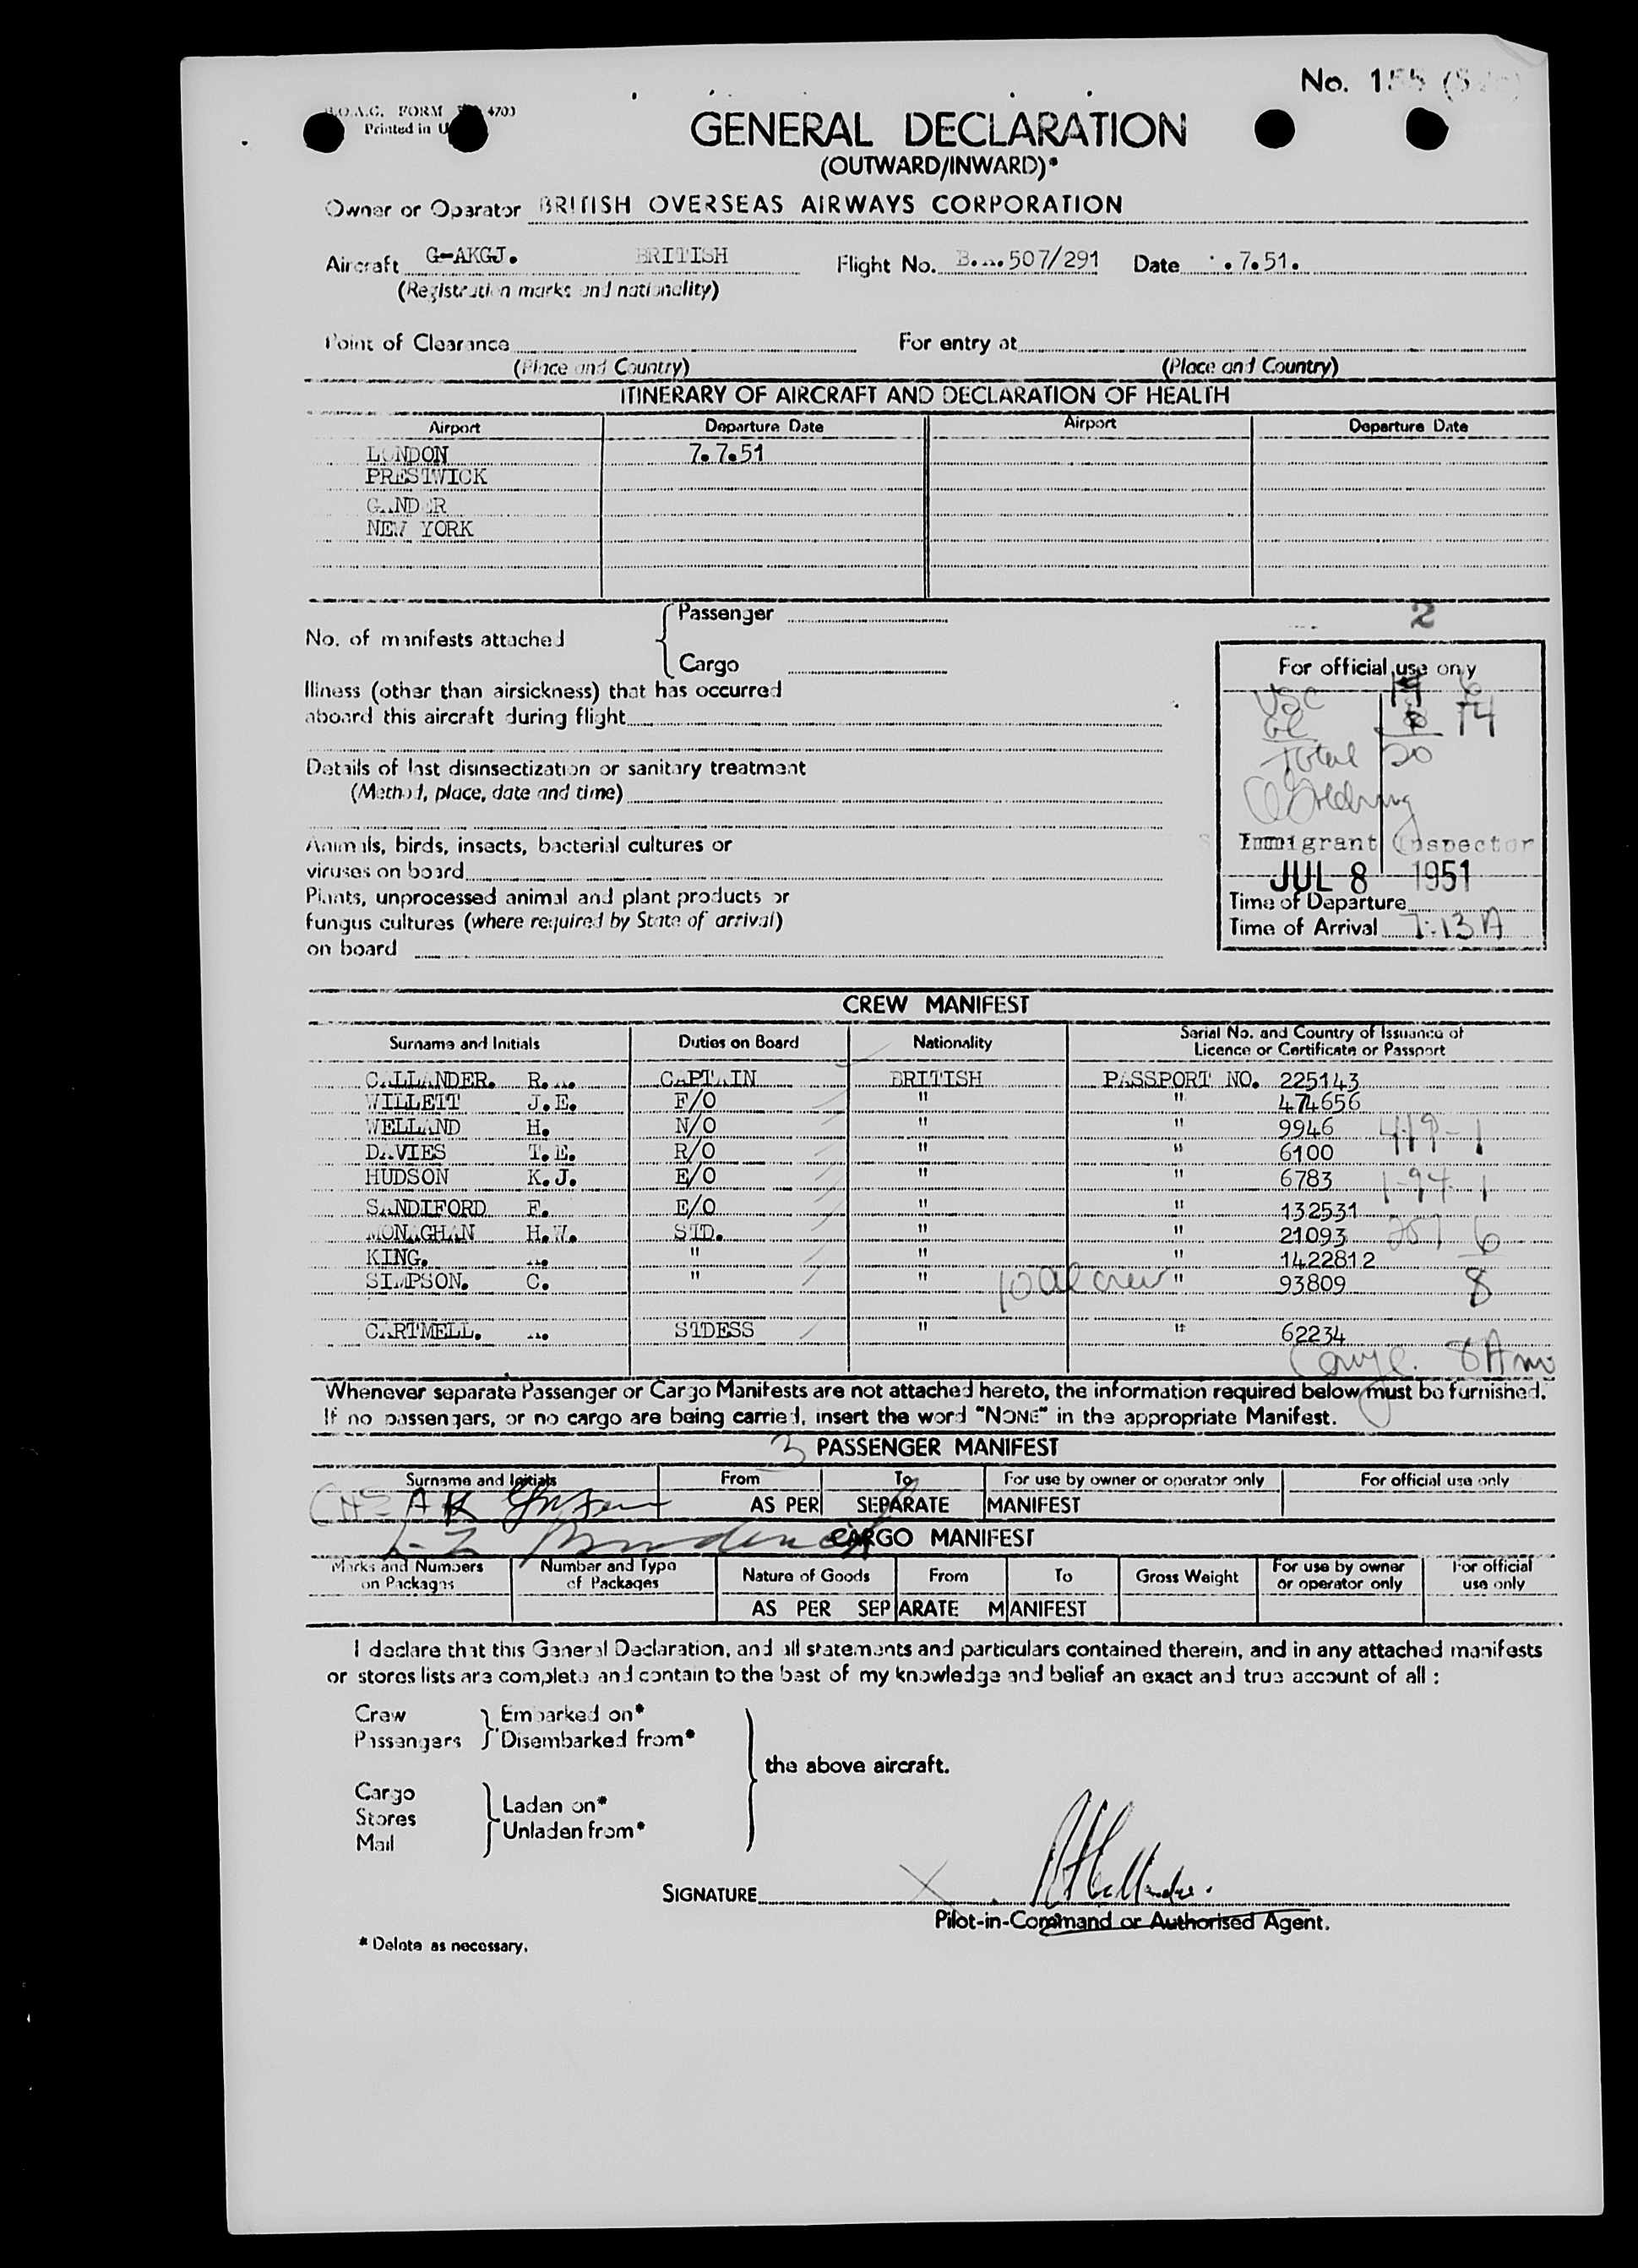 No. 155
B.O.A.C. FORM 4703
Printed in U
GENERAL DECLARATION
(OUTWARD/INWARD)*
Owner or Operator BRITISH OVERSEAS AIRWAYS CORPORATION
Aircraft G-AKGJ. BRITISH Flight No. B.A.507/291 Date .7.51.
(Registration marks and nationality)
Point of Clearance For entry at
(Place and Country) (Place and Country)
ITINERARY OF AIRCRAFT AND DECLARATION OF HEALTH
Airport Departure Date Airport Departure Date
LONDON 7.7.51
PRESTWICK
GANDER
NEW YORK
Passenger
No. of manifests attached
Cargo
2
Illness (other than airsickness) that has occurred
aboard this aircraft during flight
Details of last disinsectization or sanitary treatment
(Method, place, date and time)
Animals, birds, insects, bacterial cultures or
viruses on board
Plants, unprocessed animal and plant products or
fungus cultures (where required by State of arrival)
on board
For official use only
USC 6
14
Total 20
Immigrant Inspector
JUL 8 1951
Time of Departure
Time of Arrival 7:13A
CREW MANIFEST
Surname and Initials Duties on Board Nationality Serial No. and Country of Issuance of
Licence or Certificate or Passport
CALLANDER. R.A. CAPTAIN BRITISH PASSPORT NO. 225143
WILLETT J.E. F/O " " 474656
WELLAND H. N/O " " 9946 419-1
DAVIES T.E. R/O " " 6100
HUDSON K.J. E/O " " 6783 1-94 1
SANDIFORD F. E/O " " 132531
MONAGHAN H.W. STD. " " 21093 257 6
KING. A. " " " 1422812
SIMPSON. C. " " 10 al crew " 93809 8
CARTMELL. A. STDESS " " 62234
Whenever separate Passenger or Cargo Manifests are not attached hereto, the information required below must be furnished.
If no passengers, or no cargo are being carried, insert the word "NONE" in the appropriate Manifest.
3 PASSENGER MANIFEST
Surname and Initials From To For use by owner or operator only For official use only
AS PER SEPARATE MANIFEST
CARGO MANIFEST
Marks and Numbers on Packages Number and Type of Packages Nature of Goods From To Gross Weight For use by owner or operator only For official use only
AS PER SEPARATE MANIFEST
I declare that this General Declaration, and all statements and particulars contained therein, and in any attached manifests
or stores lists are complete and contain to the best of my knowledge and belief an exact and true account of all :
Crew Embarked on*
Passengers Disembarked from*
the above aircraft.
Cargo
Stores Laden on*
Mail Unladen from*
SIGNATURE X
Pilot-in-Command or Authorised Agent.
* Delete as necessary.